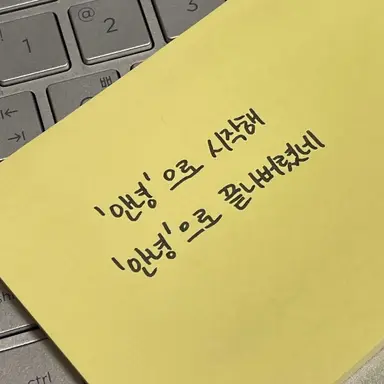 1
@
2
ㅃ
ctrl
'안녕'으로 시작해
'안녕'으로 끝나버렸네